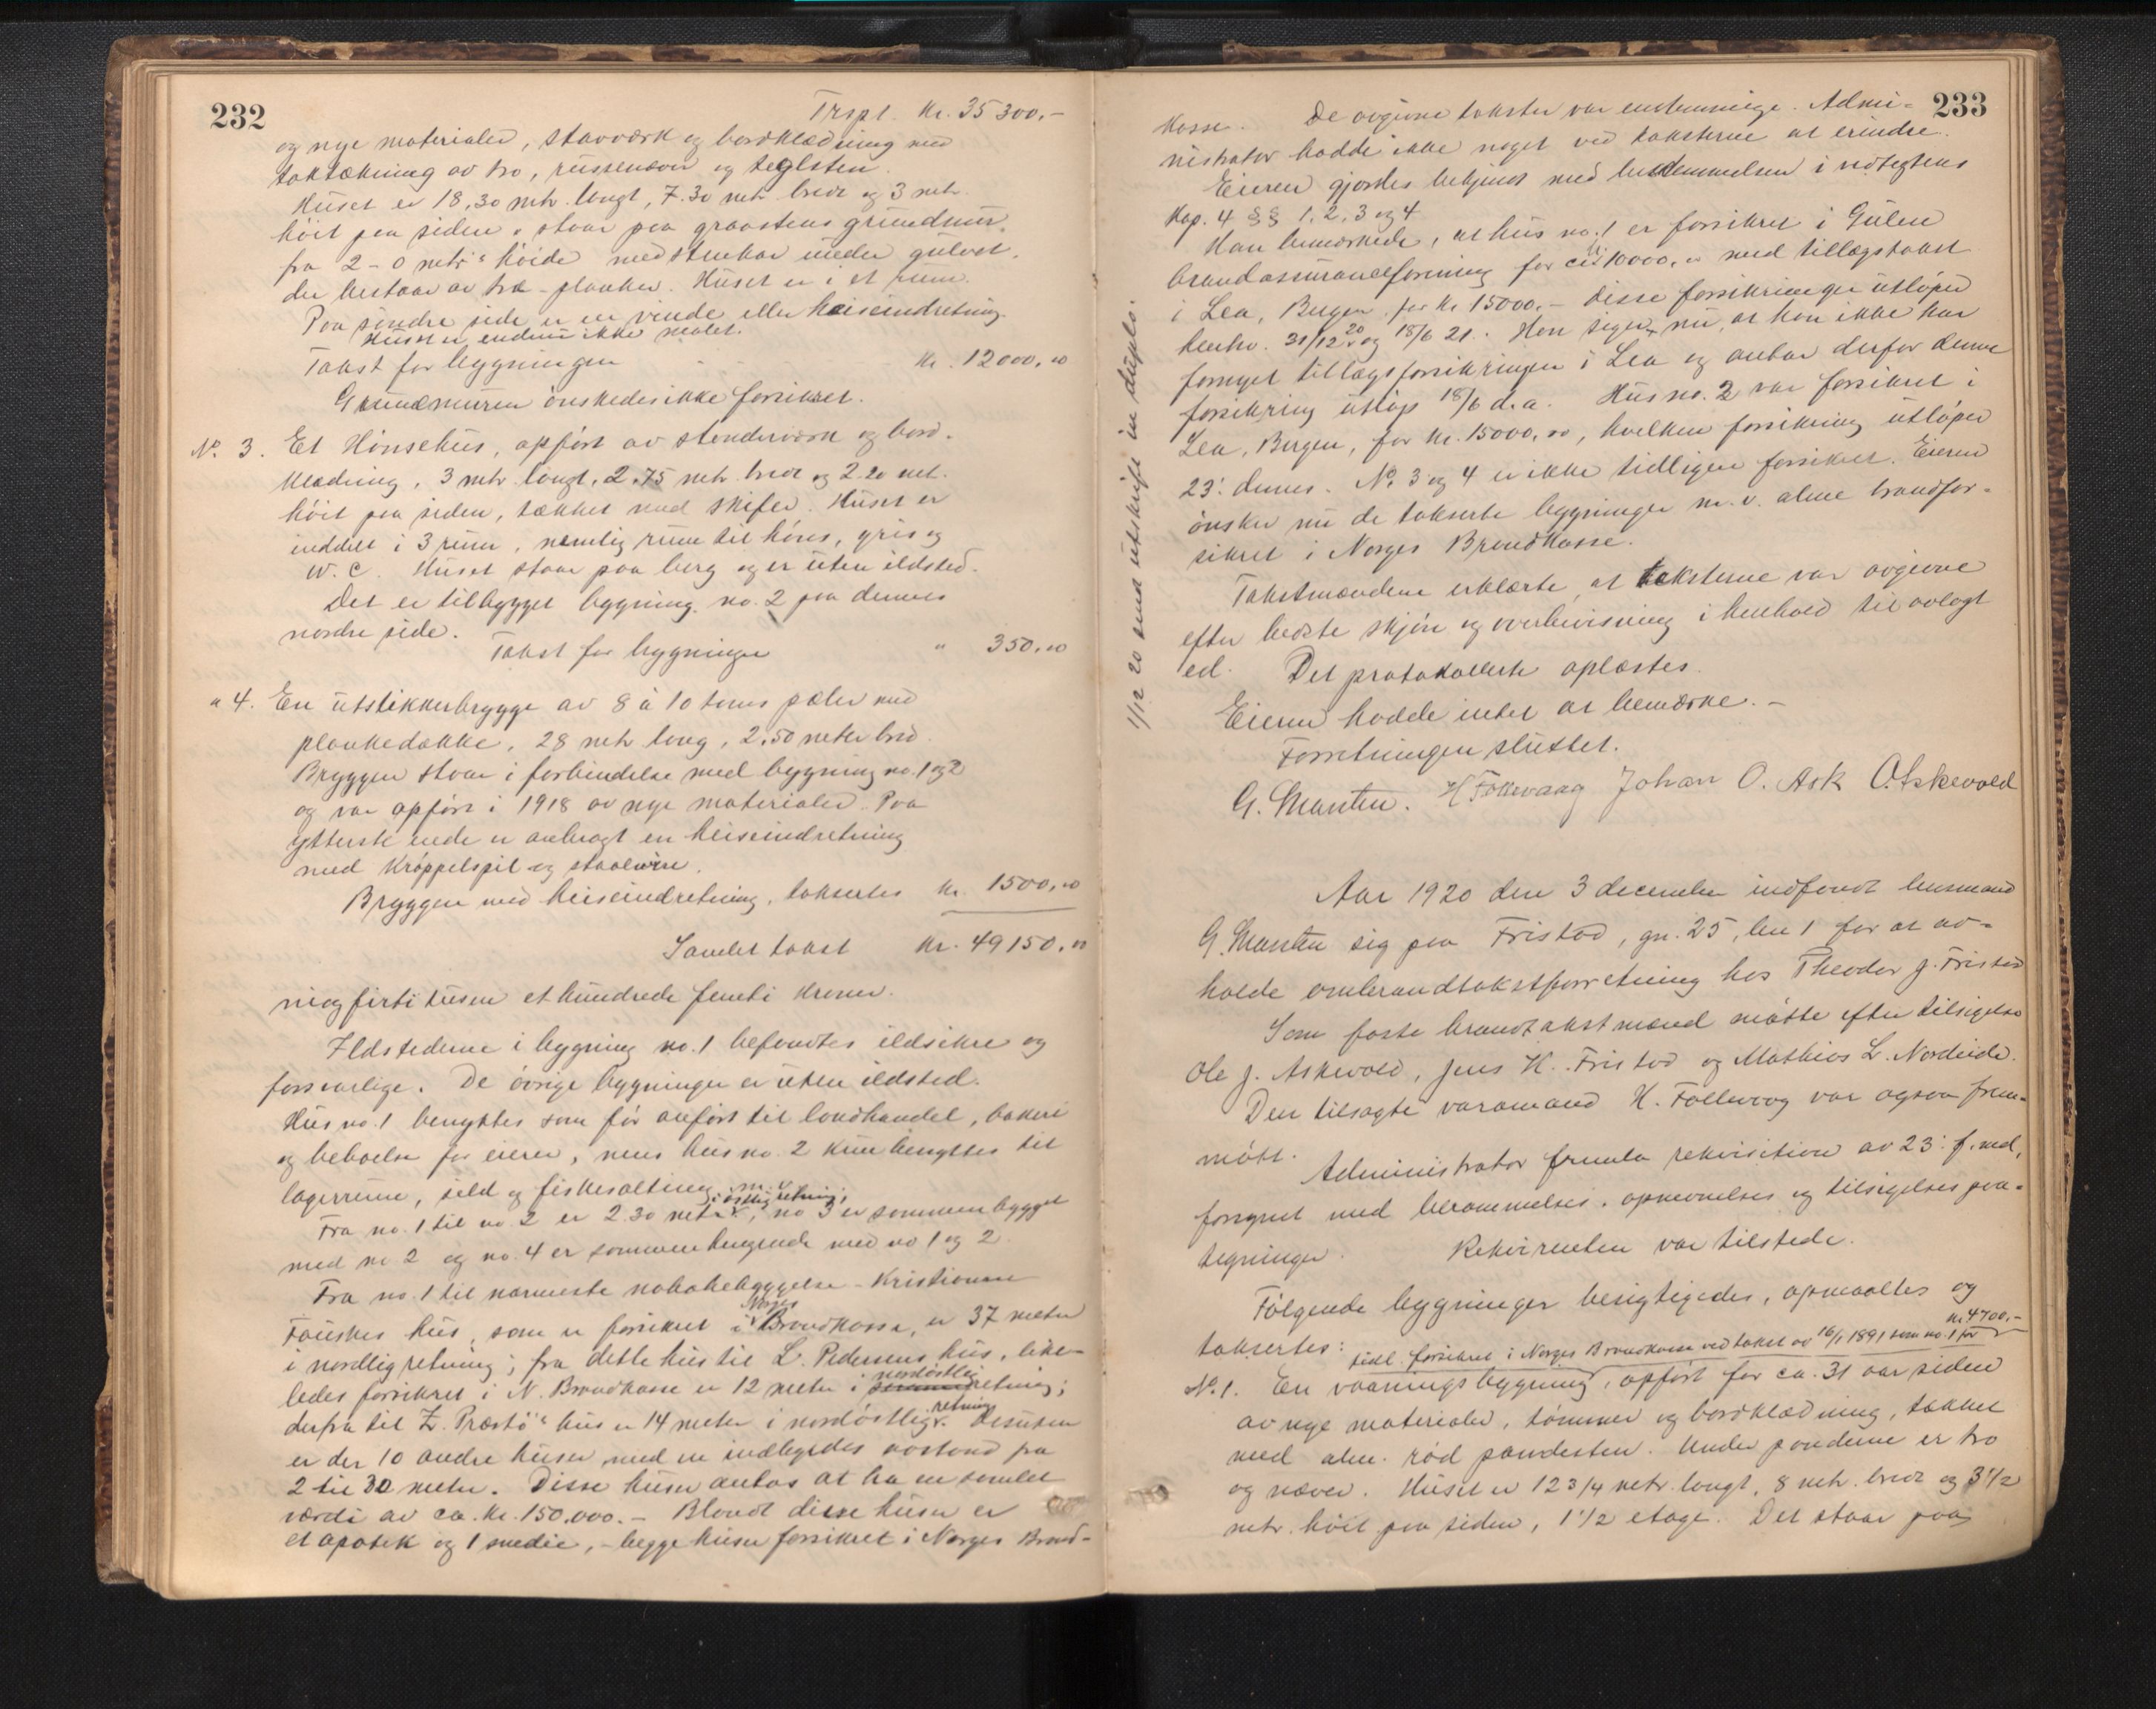 232
Trspt. Kr. 35 300,-
og nye materialer, stavværk og bordklædning med
taktækning av tro, russenæver og teglsten.
Huset er 18,30 mtr. langt, 7.30 mtr bredt og 3 mtr.
höit paa siden, staar paa graastens grundmur
fra 2-0 mtr's höide med stenkar under gulvet.
der bestaar av træ-planker. Huset er i et rum.
Paa söndre side er en vinde eller heiseindretning.
Huset er endnu ikke malet.
Takst for bygningen Kr. 12000,00
Grundmuren önskedes ikke forsikret.
No. 3. Et Hönsehus, opfört av stenderværk og bord-
klædning, 3 mtr. langt, 2,75 mtr. bredt og 2.20 mtr.
höit paa siden, tækket med skifer. Huset er
inddelt i 3 rum, nemlig rum til höns, gris og
W.C. Huset staar paa berg og er uten ildsted.
Det er tilbygget bygning no. 2 paa dennes
nordre side.
Takst for bygningen " 350,00
" 4. En utstikkerbrygge av 8 à 10 toms pæler med
plankedække, 28 mtr lang, 2,50 meter bred.
Bryggen staar i forbindelse med bygning no. 1 og 2
og var opfört i 1918 av nye materialer. Paa
ytterste ende er anbragt en heiseindretning
med Kröppelspil og staalwire.
Bryggen med heiseindretning, takseres Kr. 1500,00
Samlet takst Kr. 49150,00
niogfirti tusen et hundrede femti Kroner.
Ildstederne i bygning no. 1 befandtes ildsikre og
forsvarlige. De övrige bygninger er uten ildsted.
Hus no. 1 benyttes som för anfört til landhandel, bakeri
og beboelse for eieren, mens hus no. 2 kun benyttes til
lagerrum, sild og fiskesaltning m.v.
i östlig retning;
Fra no. 1 til no. 2 er 2.30 mtr v, no 3 er sammenbygget
med no 2 og no. 4 er sammenhengende med no 1 og 2.
Fra no. 1 til nærmeste nabobebyggelse - Kristianne
Norges
Fauskes hus, som er forsikret i v Brandkasse, er 37 meter
i nordlig retning; fra dette hus til L. Pedersens hus, like-
nordöstlig
ledes forsikret i N. Brandkasse er 12 meter i retning;
retning
derfra til Z. Præstö's hus er 14 meter i nordöstlig v. Desuten
er der 10 andre huser med en indbyrdes avstand fra
2 til 30 meter. Disse huser antas at ha en samlet
værdi av ca. Kr. 150,000.- Blandt disse huser er
et apotek og 1 smedie, - begge huser forsikret i Norges Brand-
233
kasse. De avgivne takster var enstemmige. Admi-
nistrator hadde ikke noget ved taksterne at erindre.
Eieren gjordes bekjendt med bestemmelsen i vedtegtens
Kap. 4 §§ 1, 2, 3 og 4
Han bemerkede, at hus no. 1 er forsikret i Gulen
brandassuranceforening for Kr 10000,00 med tillægstakst
i Lea, Bergen for Kr 15000.- Disse forsikringer utlöper
henhv. 31/12 20 og 18/6 21. Han siger nu, at han ikke har
fornyet tillægsforsikringen i Lea og antar derfor denne
forsikring utlöp 18/6 d.a. Hus no. 2 var forsikret i
Lea, Bergen, for Kr. 15000,00, hvilken forsikring utlöper
23' dennes. No 3 og 4 er ikke tidligere forsikret. Eieren
önsker nu de takserte bygninger m.v. alene brandfor-
sikret i Norges Brandkasse.
Takstmændene erklærte, at taksterne var avgivne
efter bedste skjön og overbevisning i henhold til avlagt
ed. Det protokollerte oplæstes.
Eieren hadde intet at bemærke.-
Forretningen sluttet.
G. Manten. H Föllevaag Johan O. Ask O. Askevold
1/12 20 sendt utskrift in duplo.
Aar 1920 den 3 december indfandt lensmand
G. Manten sig paa Fristad, gn. 25, bn 1 for at av-
holde ombrandtakstforretning hos Theodor J. Fristad
Som faste brandtakstmænd mötte efter tilsigelse
Ole J. Askevold, Jens H. Fristad og Mathias L. Nordeide.
Den tilsagte varamand H. Föllevaag var ogsaa frem-
mött.
Administrator fremla rekvisition av 23' f. md,
forsynet med berammelses, opnevnelses og tilsigelses paa-
tegninger. Rekvirenten var tilstede.
Fölgende bygninger besigtigedes, opmaaltes og
taksertes:
tidl. forsikret i Norges Brandkasse ved takst av 16/1 1891 som no. 1 for Kr 4700.-
No. 1. En vaaningsbygning, opfört for ca. 31 aar siden
av nye materialer, tömmer og bordklædning, tækket
med alm. röd pandesten. Under panderne er tro
og næver. Huset er 12 3/4 mtr. langt, 8 mtr. bredt og 3 1/2
mtr. höit paa siden, 1 1/2 etage. Det staar paa